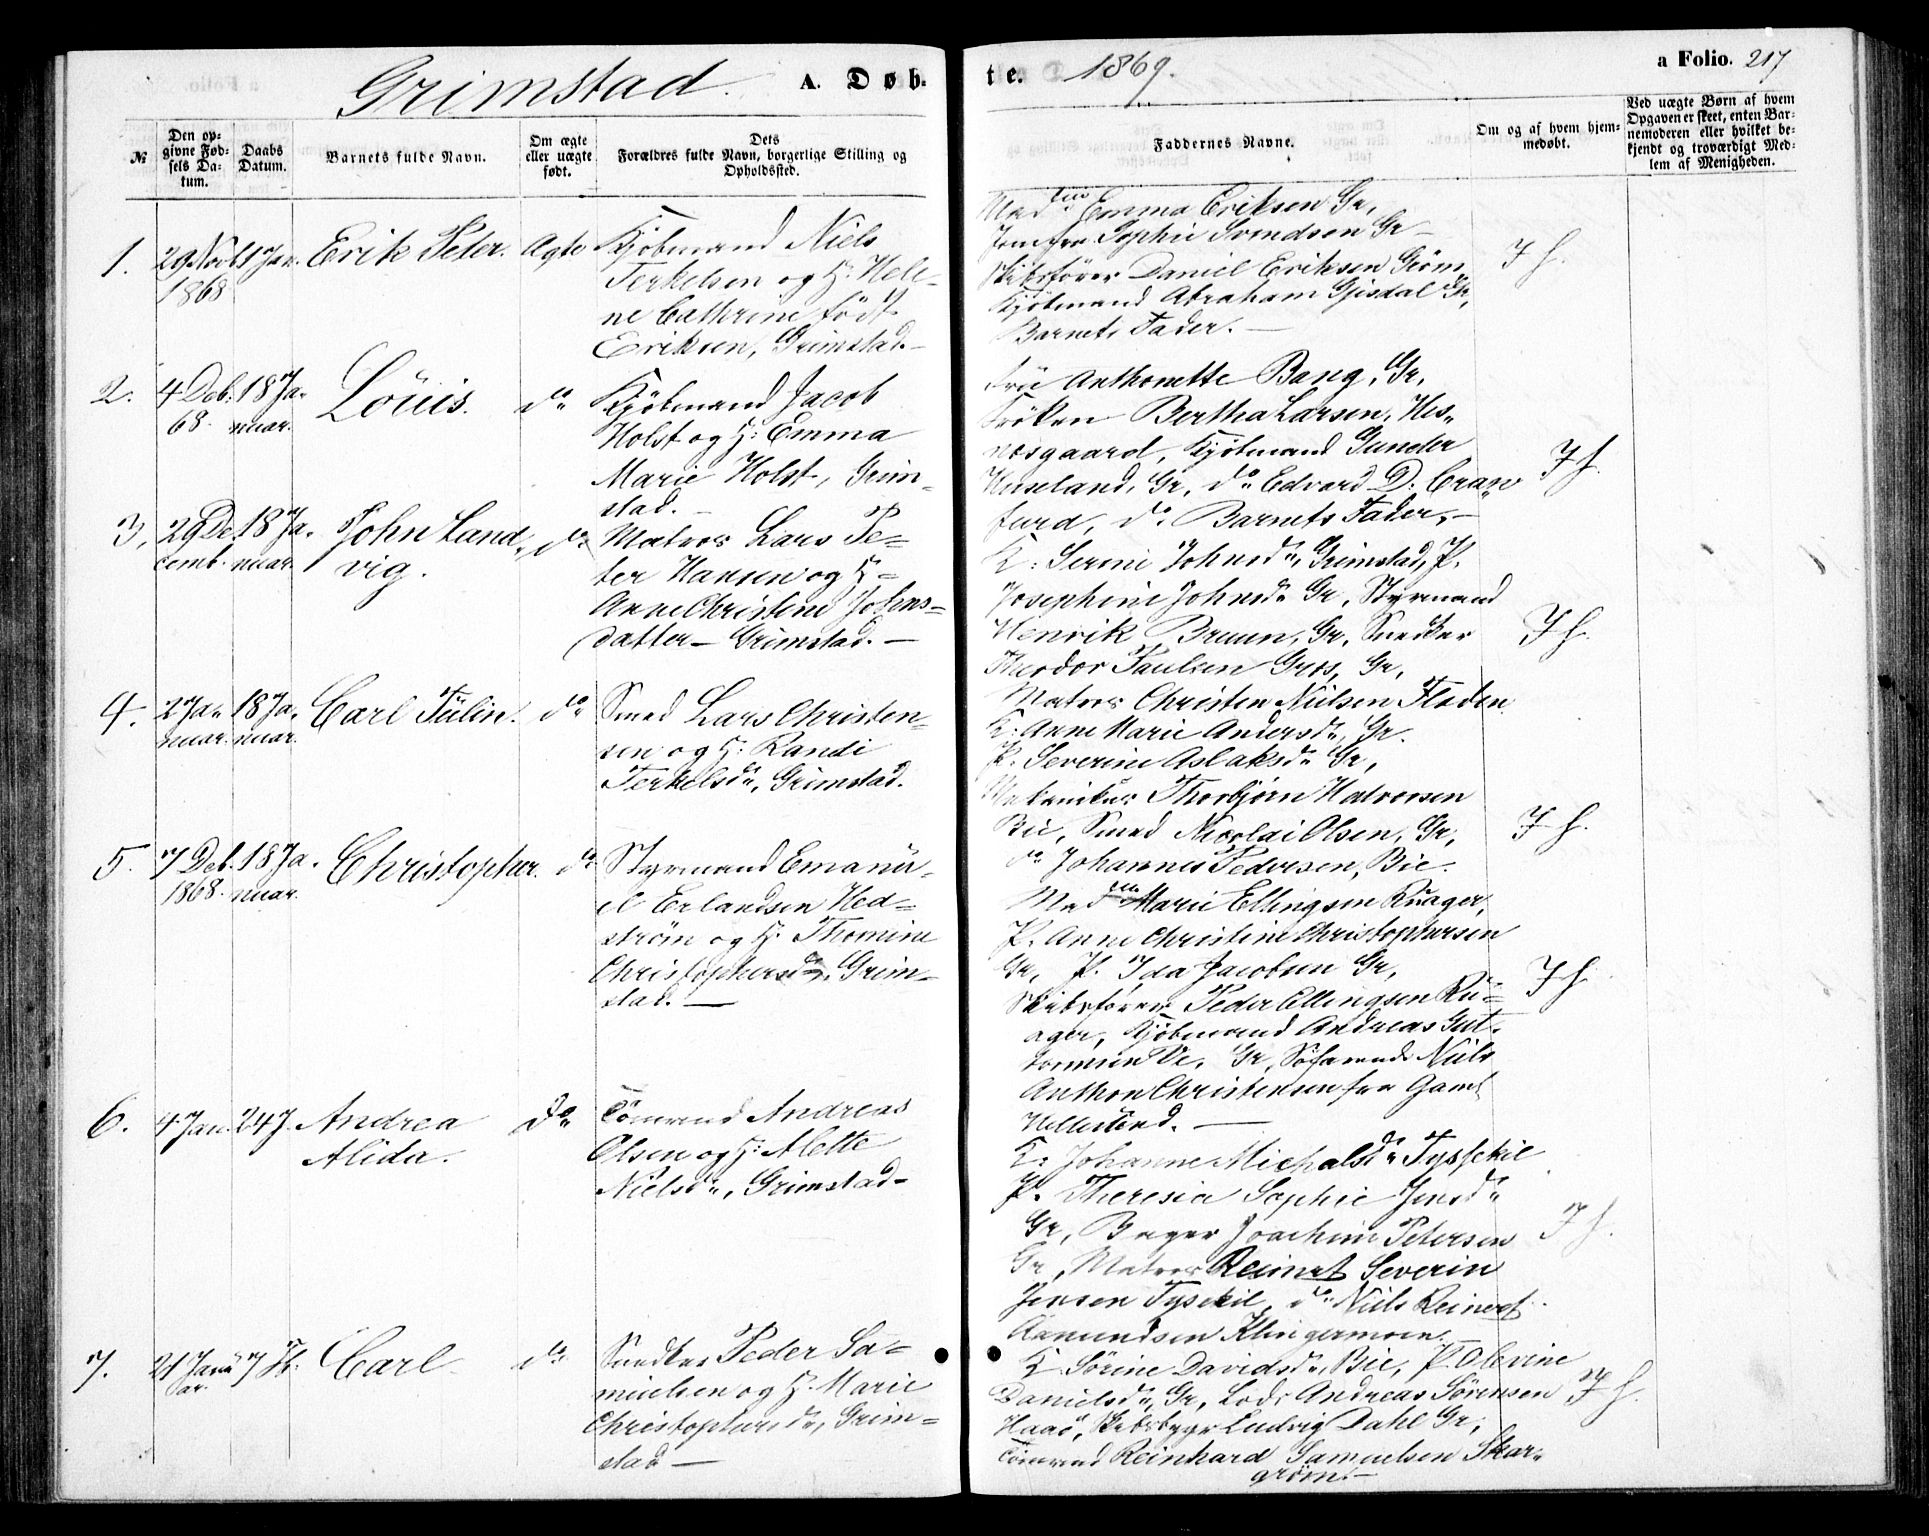 Grimstad. A. Døb-
te. 1869.
a Folio. 217
№
Den op-
givne Fød-
sels Da-
tum.
Daabs
Datum.
Barnets fulde Navn.
Om ægte
eller uægte
født.
Dets
Forældres fulde Navn, borgerlige Stilling og
Opholdssted.
Faddernes Navne.
Om og af hvem hjem-
medøbt.
Ved uægte Børn af hvem
Opgaven er skeet, enten Bar-
nemoderen eller hvilket be-
kjendt og troværdigt Med-
lem af Menigheden.
1. 29 Nov 1 Jan. Erik Peter. Ægte Kjøbmand Niels
1868 Terkelsen og H: Hele-
ne Cathrine født
Eriksen, Grimstad.-
Emma Eriksen Gr,
Jomfru Sophie Svendsen Gr-
Skibsfører Daniel Eriksen Grøm,
Kjøbmand Abraham Gjisdal Gr,
Barnets Fader. -
J h.
2. 4 Deb. 18 Ja- Louis. do Kjøbmand Jacob
68. nuar. Holst og H: Emma
Marie Holst, Grim-
stad. -
Frü Anthonette Bang, Gr,
Frøken Bertha Larsen, Hes-
næsgaard, Kjøbmand Gunder
Huseland, Gr, do Edvard D. Cran-
furd, do. Barnets Fader, -
J h.
3, 29 De- 18 Ja- John Land- do Matros Lars Pe-
cemb. nuar. vig. ter Hansen og H-
Anne Christine Johns-
datter - Grimstad. -
K: Serine Johnsdr, Grimstad, P.
Josephine Johnsdr Gr, Styrmand
Henrik Bruun, Gr, Snedker
Theodor Paulsen Gros, Gr,
Matros Christen Nielsen Floden.
J h.
4. 2 Ja- 18 Ja- Carl Julin. do Smed Lars Christen-
nuar. nuar. sen og H: Randi
Terkelsdr, Grimstad.
K: Anne Marie Andersdr, Gr.
P. Severine Aslaksdr Gr,
Mekanikus Thorbjørn Halvorsen
Bie, Smed Nicolai Olsen, Gr,
do Johannes Pedersen, Bie.
J h.
5. 7 Deb. 18 Ja- Christopher. do Styrmand Emanu-
1868. nuar. el Erlandsen Hed-
strøm og H. Thomine
Christophersdr, Grim-
stad. -
Marie Ellingsen Ruager,
P. Anne Christine Christophersen
Gr, P. Ida Jacobsen Gr,
Skibsfører Peder Ellingsen Ru-
ager, Kjøbmand Andreas Gut-
tormsen Ve, Gr, Søfarende Niels
Anthon Christensen fra Gaml
Hellesund. -
J h.
6. 4 Jan. 24 J. Andrea do Tømmand Andreas
Alida. Olsen og H: Mette
Nielsdr, Grimstad-
K: Johanne Michalsdr Tyssekil
P. Theresia Sophie Jensdr
Gr, Bager Joachim Petersen
Gr, Matros Reinert Severin
Jensen Tysekil, do Niels Reinert
Aamundsen Klingermoen.
J h.
7. 21 Janu- 7 Fb. Carl. do Snedker Peder Sa-
ar. muelsen og H. Marie
Christophersdr, Grim-
stad -
K. Sørine Davidsdr, Bie, P. Olevine
Danielsdr, Gr, Lods Andreas Sørensen
Haaø, Skibsbygr Ludvig Dahl Gr,
Tømmand Reinhard Samuelsen Skar-
grøm. -
J h.